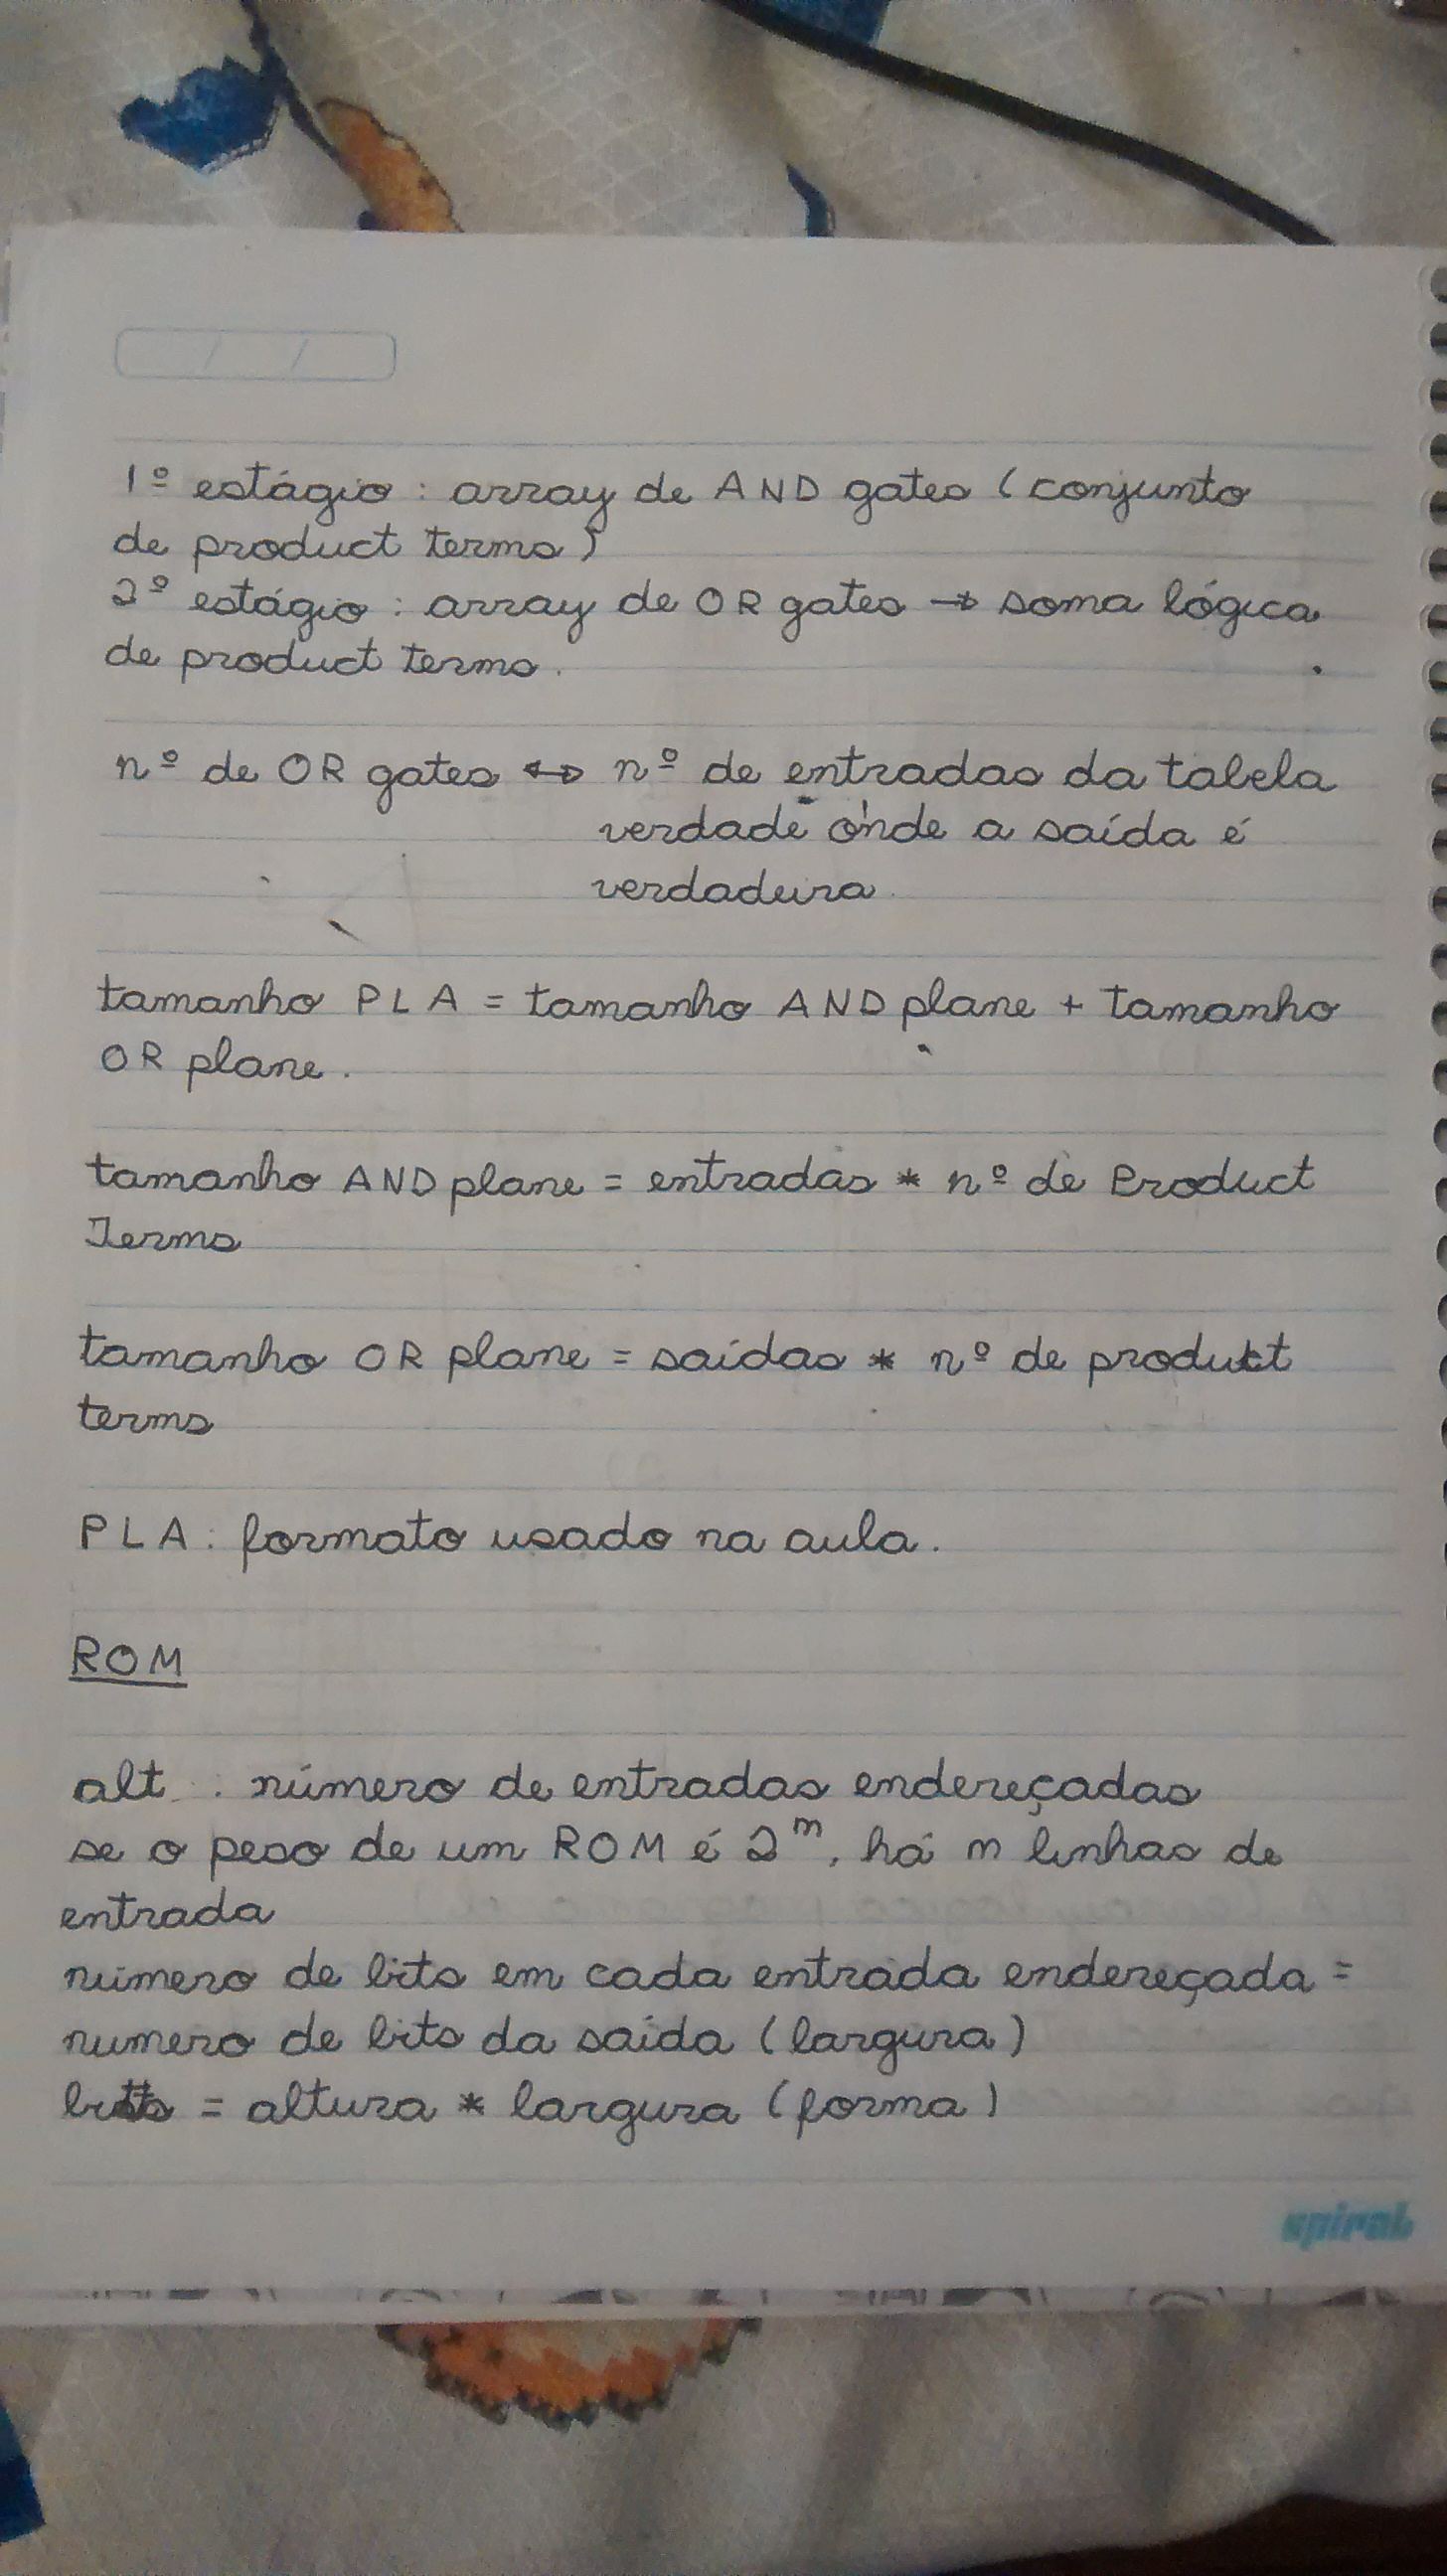 1º estágio : array de AND gates (conjunto
de product terms)
2º estágio : array de OR gates → soma lógica
de product terms.
nº de OR gates ↔ nº de entradas da tabela
verdade onde a saída é
verdadeira.
tamanho PLA = tamanho AND plane + tamanho
OR plane.
tamanho AND plane = entradas * nº de Product
Terms
tamanho OR plane = saídas * nº de product
terms
PLA : formato usado na aula.
ROM
alt. : número de entradas endereçadas
se o peso de um ROM é 2^m, há m linhas de
entrada
número de bits em cada entrada endereçada =
numero de bits da saída (largura)
bits = altura * largura (forma)
spiral